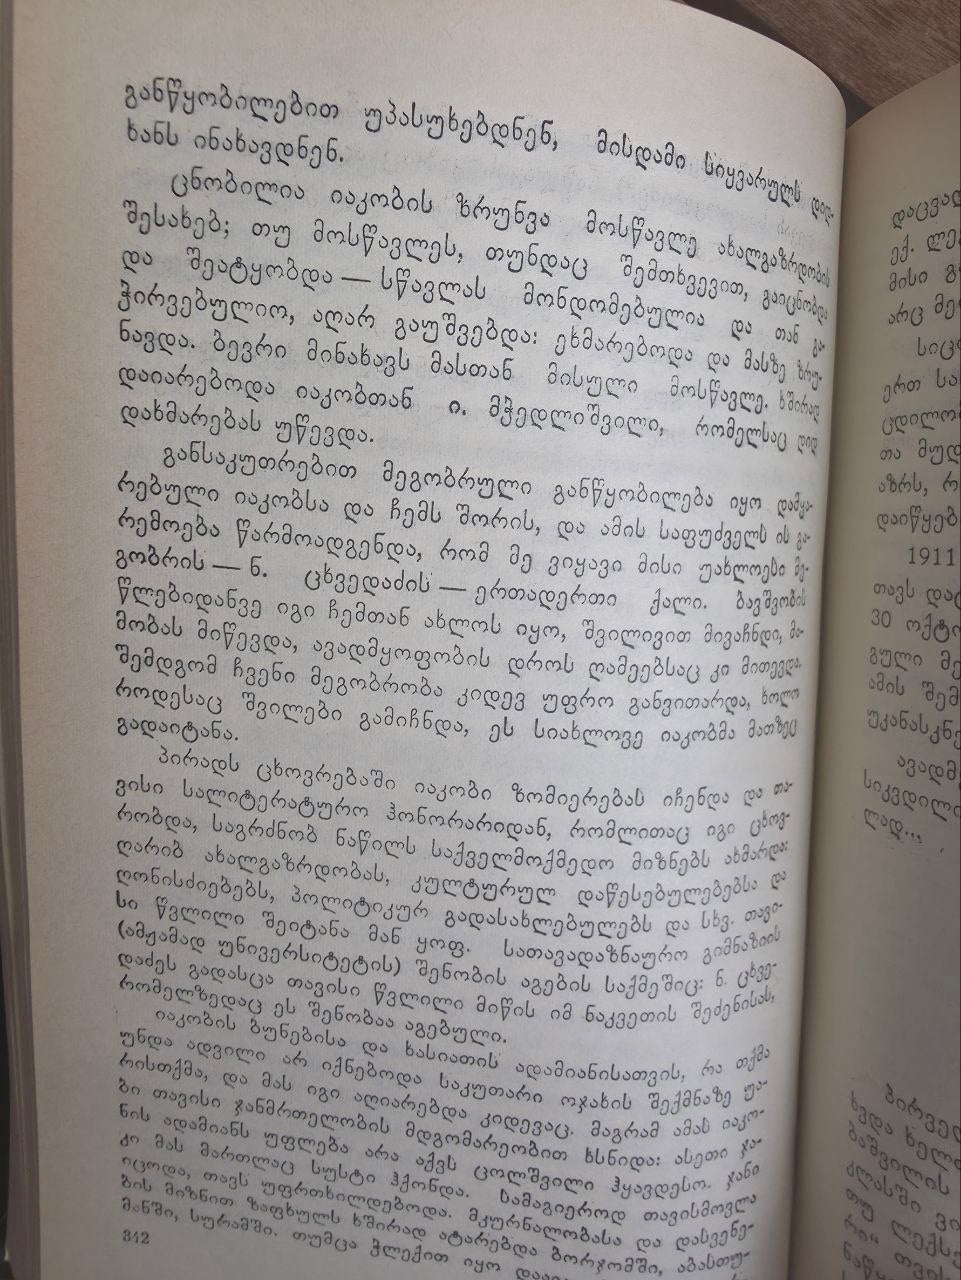 განწყობილებით უპასუხებდნენ, მისდამი სიყვარულს დიდ-
ხანს ინახავდნენ.
ცნობილია იაკობის ზრუნვა მოსწავლე ახალგაზრდობის
შესახებ; თუ მოსწავლეს, თუნდაც შემთხვევით, გაიცნობდა
და შეატყობდა — სწავლას მონდომებულია და თან გა-
ჭირვებულიო, აღარ გაუშვებდა: ეხმარებოდა და მასზე ზრუ-
ნავდა. ბევრი მინახავს მასთან მისული მოსწავლე. ხშირად
დაიარებოდა იაკობთან ი. მჭედლიშვილი, რომელსაც დიდ
დახმარებას უწევდა.
განსაკუთრებით მეგობრული განწყობილება იყო დამყა-
რებული იაკობსა და ჩემს შორის, და ამის საფუძველს ის გა-
რემოება წარმოადგენდა, რომ მე ვიყავი მისი უახლოესი მე-
გობრის — ნ. ცხვედაძის — ერთადერთი ქალი. ბავშვობის
წლებიდანვე იგი ჩემთან ახლოს იყო, შვილივით მივაჩნდი, მა-
მობას მიწევდა, ავადმყოფობის დროს ღამეებსაც კი მითევდა.
შემდგომ ჩვენი მეგობრობა კიდევ უფრო განვითარდა, ხოლო
როდესაც შვილები გამიჩნდა, ეს სიახლოვე იაკობმა მათზეც
გადაიტანა.
პირადს ცხოვრებაში იაკობი ზომიერებას იჩენდა და თა-
ვისი სალიტერატურო ჰონორარიდან, რომლითაც იგი ცხოვ-
რობდა, საგრძნობ ნაწილს საქველმოქმედო მიზნებს ახმარდა:
ღარიბ ახალგაზრდობას, კულტურულ დაწესებულებებსა და
ღონისძიებებს, პოლიტიკურ გადასახლებულებს და სხვ. თავი-
სი წვლილი შეიტანა მან ყოფ. სათავადაზნაურო გიმნაზიის
(ამჟამად უნივერსიტეტის) შენობის აგების საქმეშიც: ნ. ცხვე-
დაძეს გადასცა თავისი წვლილი მიწის იმ ნაკვეთის შეძენისას,
რომელზედაც ეს შენობაა აგებული.
იაკობის ბუნებისა და ხასიათის ადამიანისათვის, რა თქმა
უნდა ადვილი არ იქნებოდა საკუთარი ოჯახის შექმნაზე უა-
რისთქმა, და მას იგი აღიარებდა კიდევაც. მაგრამ ამას იაკო-
ბი თავისი ჯანმრთელობის მდგომარეობით ხსნიდა: ასეთი ჯა-
ნის ადამიანს უფლება არა აქვს ცოლშვილი ჰყავდესო. ჯანი
კი მას მართლაც სუსტი ჰქონდა. სამაგიეროდ თავისმოვლა
იცოდა, თავს უფრთხილდებოდა. მკურნალობასა და დასვენე-
ბის მიზნით ზაფხულს ხშირად ატარებდა ბორჯომში, აბასთუ-
მანში, სურამში. თუმცა ჭლექით იყო
312
დაცვად
ექ.
მისი
არც
ერთ
თა
აზრს,
1911
თავს
30
გული
ამის
ლად...
პირველ
კლასში
თუ